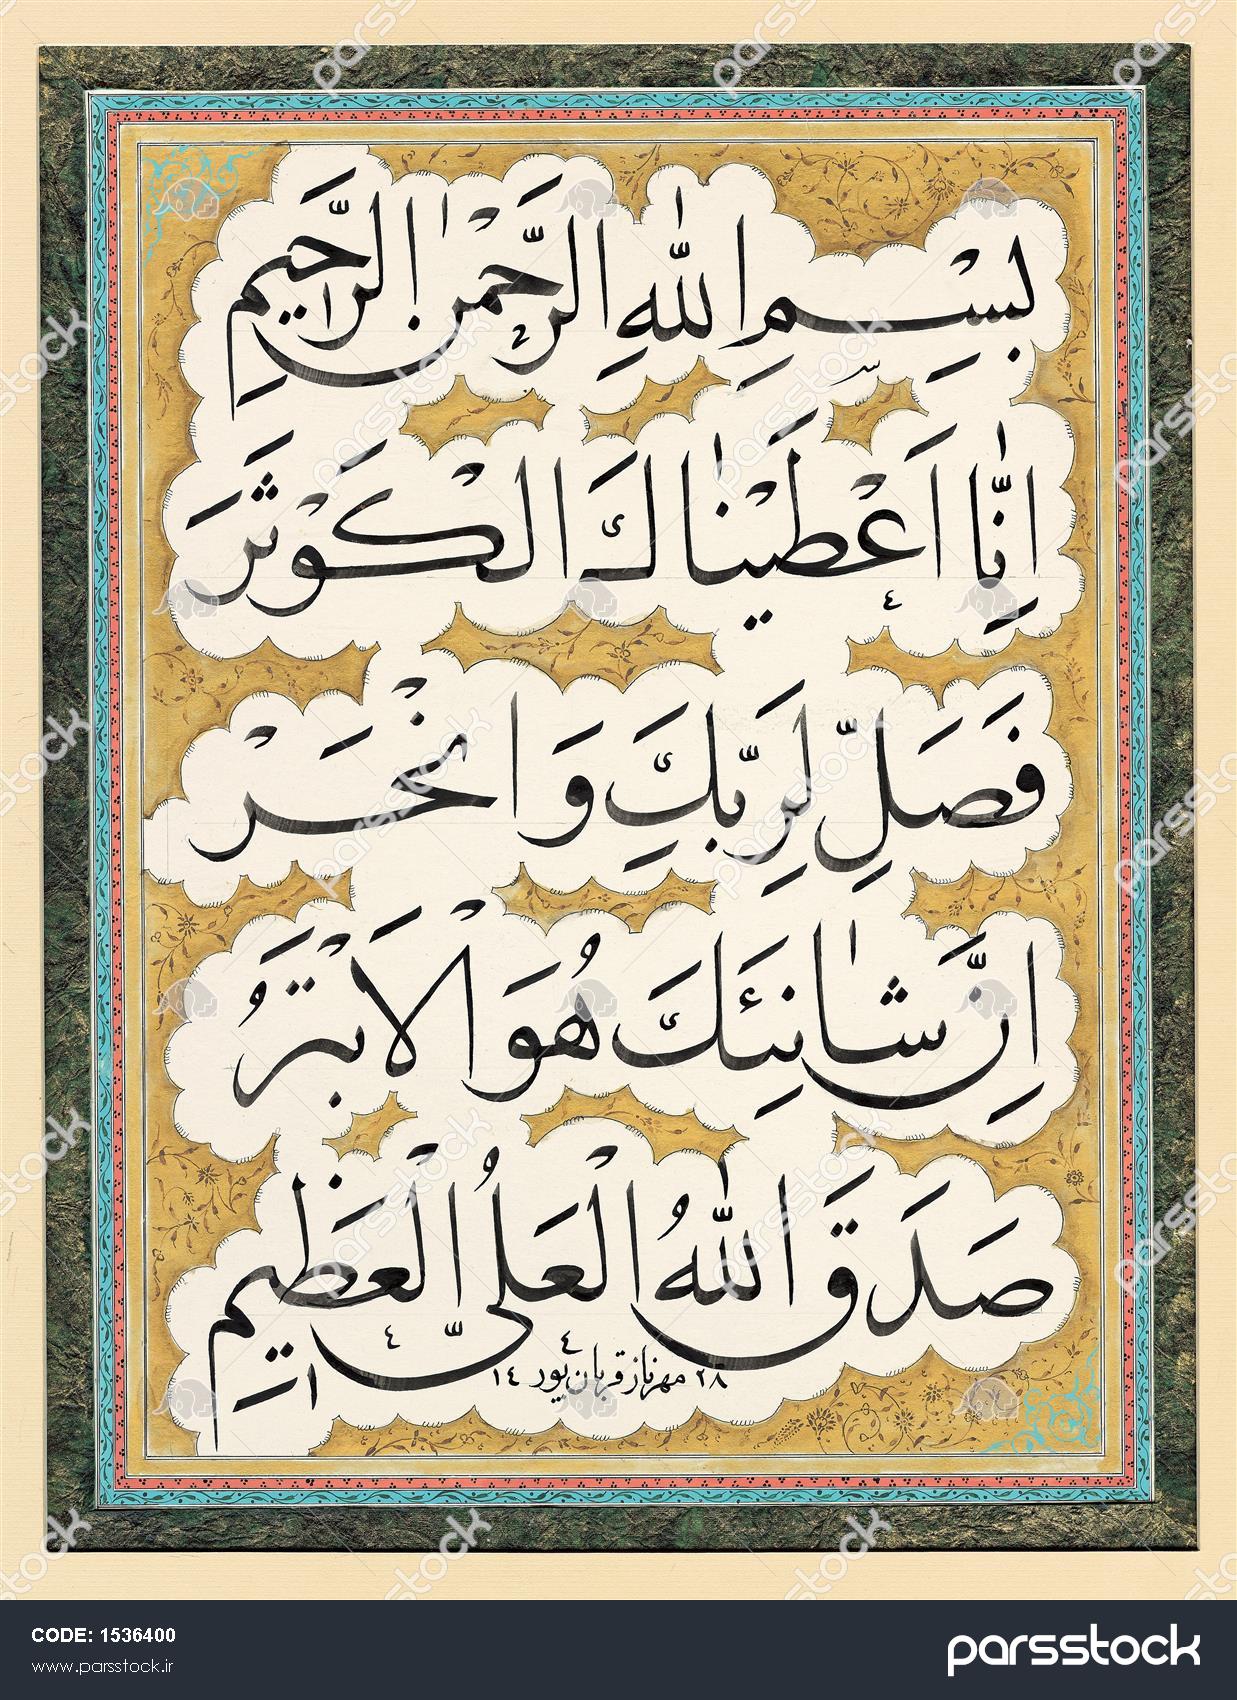 بِسْمِ اللهِ الرَّحْمٰنِ الرَّحیمِ
اِنّٰا اَعْطَیْنٰاكَ الْكَوْثَرَ
فَصَلِّ لِرَبِّكَ وَ انْحَرْ
اِنَّ شٰانِئَكَ هُوَ الْاَبْتَرُ
صَدَقَ اللهُ الْعَلُیُّ الْعَظیمِ
۲۸ مهرناز قربان پور ۱٤
CODE: 1536400
www.parsstock.ir
parsstock